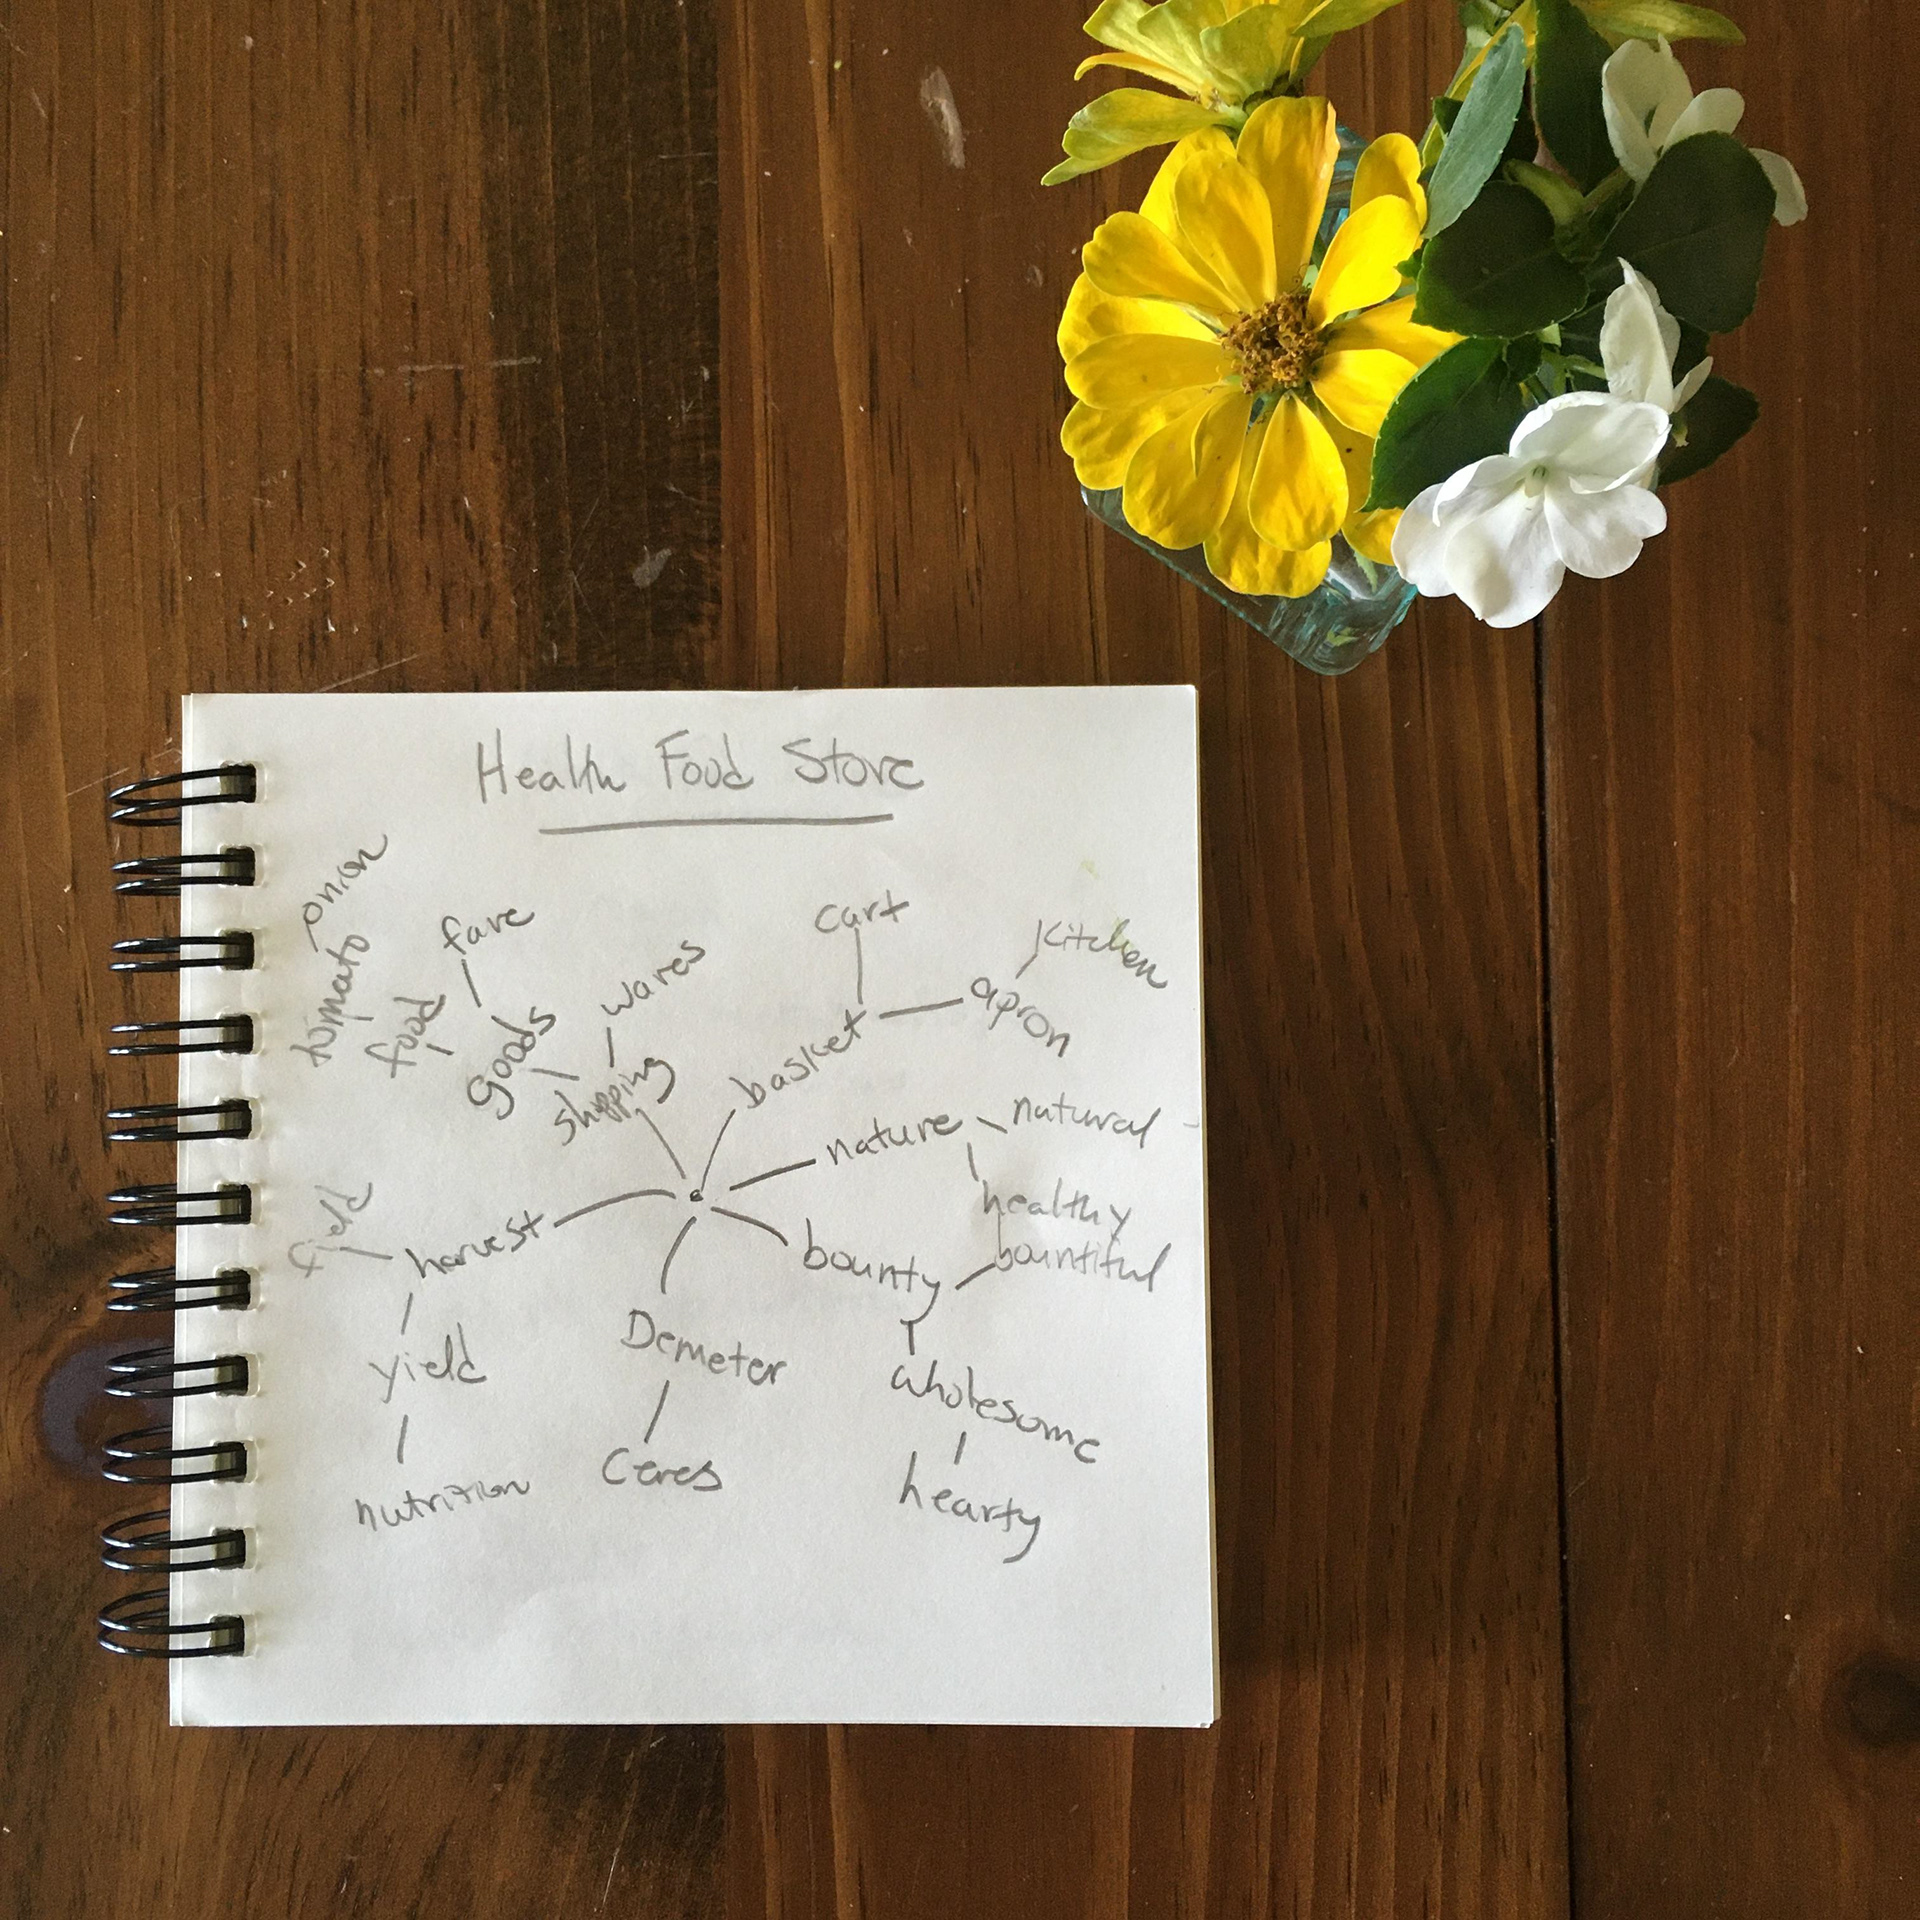 Health Food Store
onion
tomato
fare
food
goods
wares
shopping
cart
basket
apron
kitchen
nature
natural
healthy
bounty
bountiful
wholesome
hearty
Demeter
Ceres
harvest
field
yield
nutrition